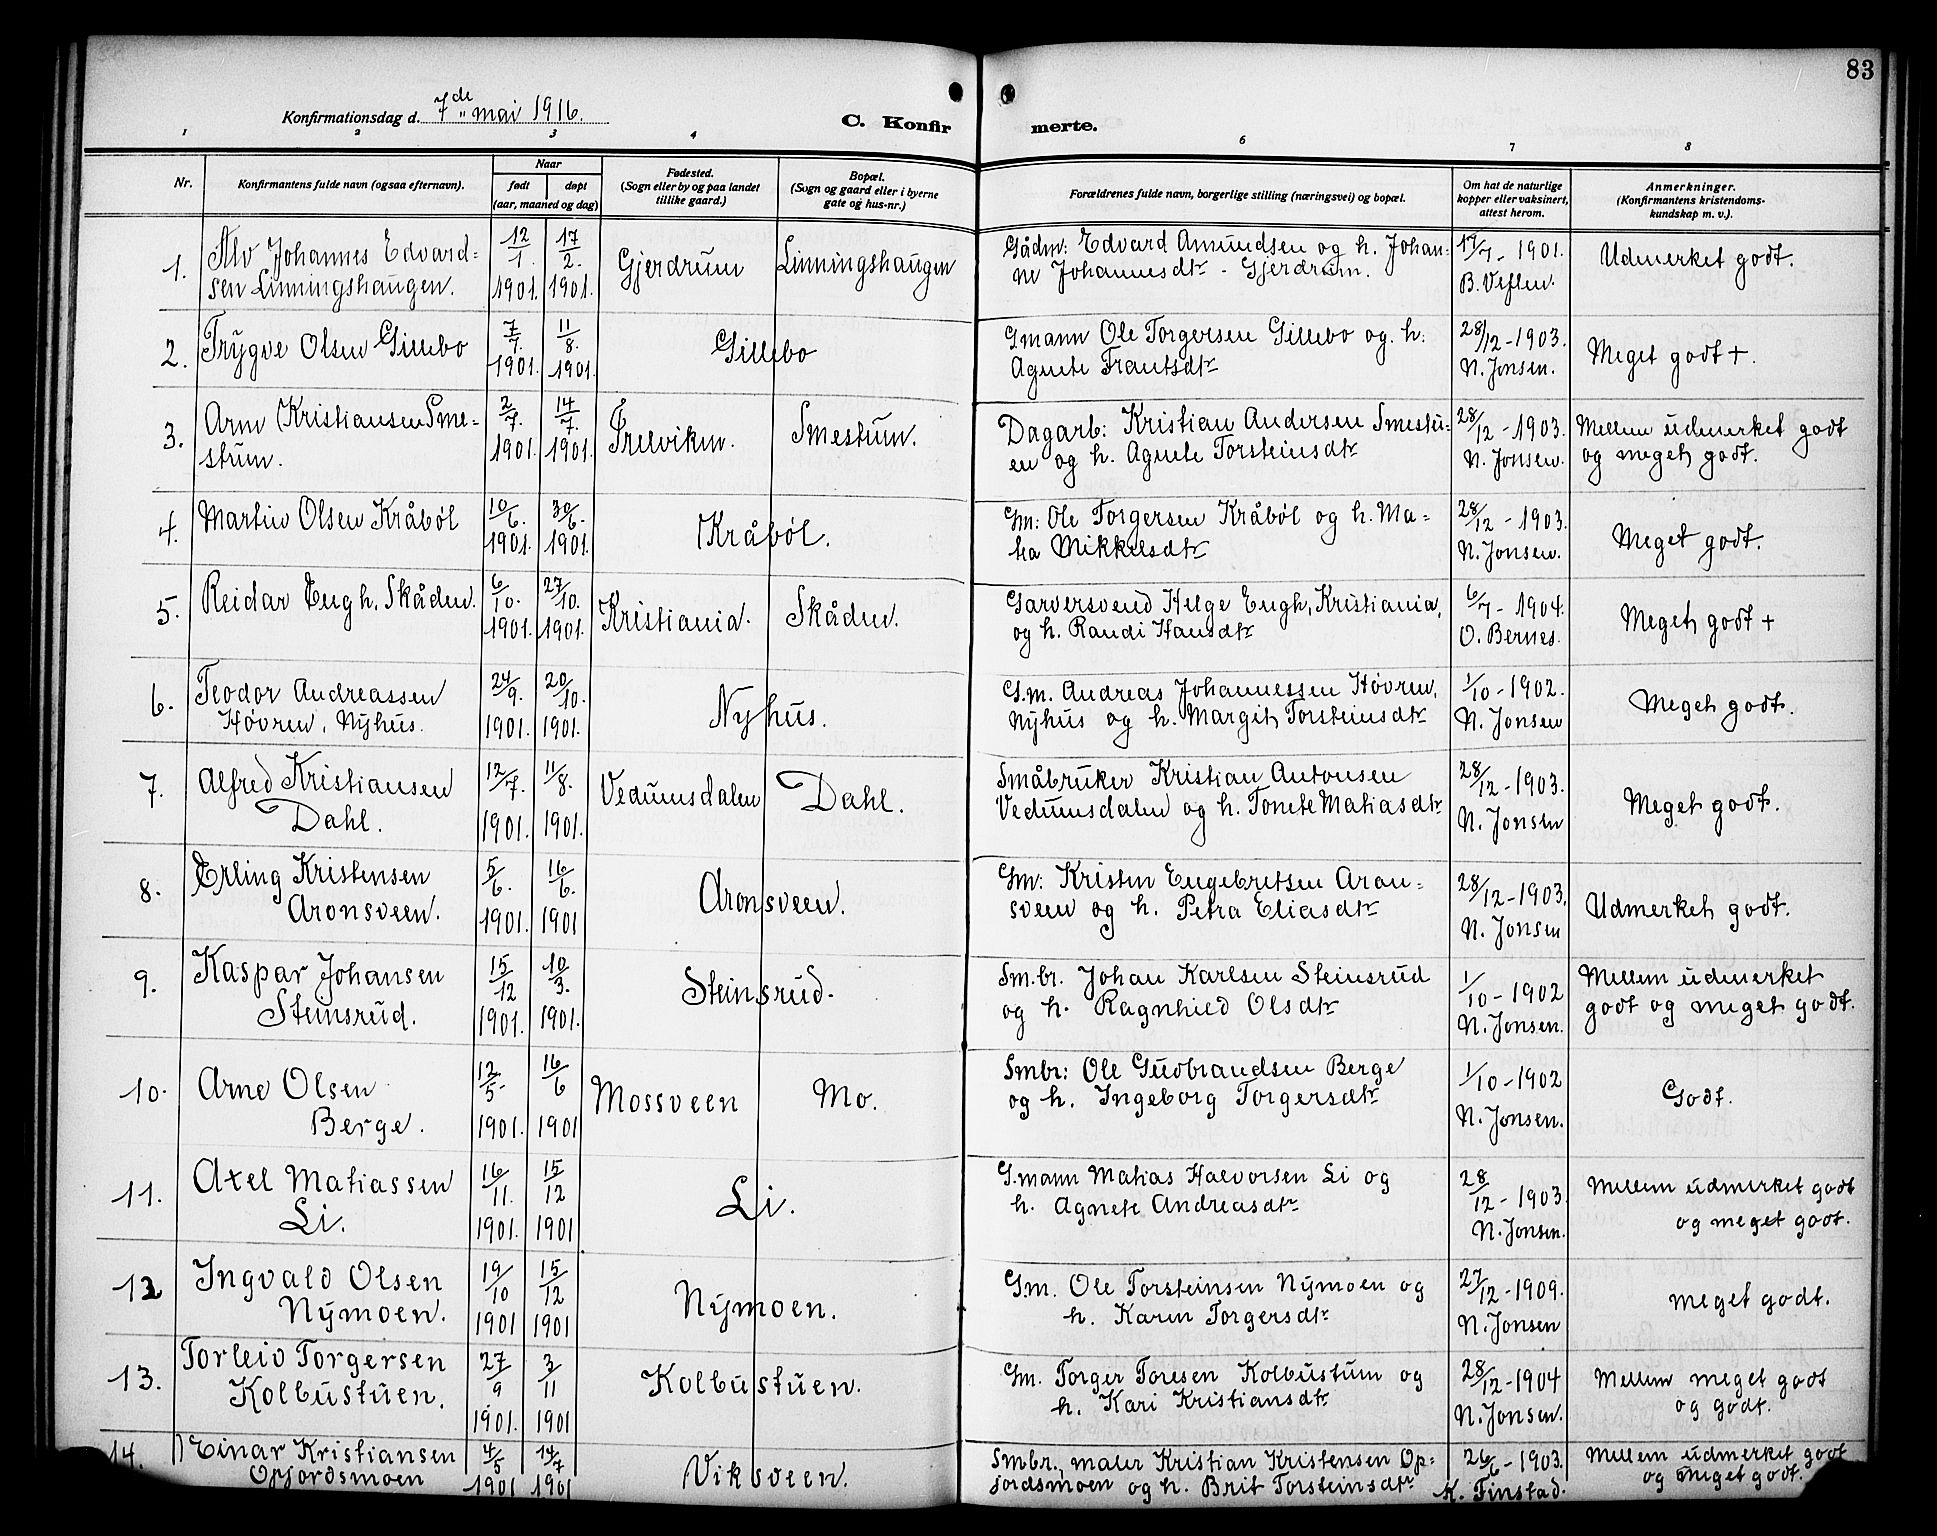 83
Konfirmationsdag d. 7de mai 1916.
C. Konfirmerte.
1 2 3 4 6 7 8
Nr.
Konfirmantens fulde navn (ogsaa efternavn).
Naar
født
døpt
(aar, maaned og dag)
Fødested.
(Sogn eller by og paa landet
tillike gaard.)
Bopæl.
(Sogn og gaard eller i byerne
gate og hus-nr.)
Forældrenes fulde navn, borgerlige stilling (næringsvei) og bopæl.
Om hat de naturlige
kopper eller vaksinert,
attest herom.
Anmerkninger.
(Konfirmantens kristendoms-
kundskap m. v.).
1.
Alv Johannes Edvard=
sen Linningshaugen.
12/1. 1901.
17/2. 1901.
Gjerdrum
Linningshaugen
Gådm: Edvard Amundsen og h. Johan=
ne Johannesdtr - Gjerdrum.
17/7 - 1901.
B. Veflen.
Udmerket godt.
2.
Trygve Olsen Gillebo
7/7. 1901.
11/8. 1901.
Gillebo
Gmann Ole Torgersen Gillebo og. h.
Agnete Frantsdtr
28/12 - 1903.
N. Jonsen.
Meget godt +.
3.
Arne Kristiansen Sme=
stuen.
2/7. 1901.
14/7. 1901.
Frelviken.
Smestuen.
Dagarb: Kristian Andersen Smestu=
en og h. Agnete Torsteinsdtr
28/12 - 1903.
N. Jonsen.
Mellem udmerket godt
og meget godt.
4.
Martin Olsen Kråbøl
10/6. 1901.
30/6. 1901.
Kråbøl.
Gm: Ole Torgersen Kråbøl og h. Ma=
ha Mikkelsdtr
28/12 - 1903.
N. Jonsen.
Meget godt.
5.
Reidar Engh, Skåden.
6/10. 1901.
27/10. 1901.
Kristiania.
Skåden.
Garversvend Helge Engh, Kristiania,
og h. Randi Hansdtr
6/7 - 1904.
O. Bernes.
Meget godt +
6.
Teodor Andreassen
Høvren, Nyhus.
24/9. 1901.
20/10. 1901.
Nyhus.
G.m. Andreas Johannessen Høvren,
Nyhus og h. Margit Torsteinsdtr
1/10 - 1902.
N. Jonsen
Meget godt.
7.
Alfred Kristiansen
Dahl.
12/7. 1901.
11/8. 1901.
Vedumsdalen
Dahl.
Småbruker Kristian Antonsen
Vedumsdalen og h. Tonete Matiasdtr
28/12 - 1903.
N. Jonsen
Meget godt.
8.
Erling Kristensen
Aronsveen.
5/6. 1901.
16/6. 1901
Aronsveen.
Gm: Kristen Engebretsen Aron=
sveen og h. Petra Eliasdtr
28/12 - 1903.
N. Jonsen
Udmerket godt.
9.
Kaspar Johansen
Steinsrud.
15/12 1901.
10/3. 1901.
Steinsrud.
Sm.br. Johan Karlsen Steinsrud
og h. Ragnhild Olsdtr
1/10 - 1902
N. Jonsen.
Mellem udmerket
godt og meget godt.
10.
Arne Olsen
Berge.
12/5. 1901.
16/6 1901
Mossveen
Mo.
Smbr: Ole Gudbrandsen Berge
og h. Ingeborg Torgersdtr
1/10 - 1902
N. Jonsen.
Godt.
11.
Axel Matiassen
Li.
16/11. 1901.
15/12 1901
Li.
G.mann Matias Halvorsen Li og
h. Agnete Andreasdtr
28/12 - 1903.
N. Jonsen.
Mellem udmerket godt
og meget godt.
12
Ingvald Olsen
Nymoen.
19/10 1901
15/12 1901
Nymoen.
Gm. Ole Torsteinsen Nymoen og
h. Karen Torgersdtr
27/12 - 1909.
N. Jonsen
meget godt.
13.
Torleiv Torgersen
Kolbustuen.
27/9 1901.
3/11 1901
Kolbustuen.
Gm. Torger Toresen Kolbustuen og
h. Kari Kristiansdtr
28/12 - 1904
N. Jonsen.
Mellem meget godt
og godt.
14.
Einar Kristiansen
Opjordsmoen
4/5 1901
14/7 1901
Viksveen.
Smbr., maler Kristian Kristensen Op=
jordsmoen og h. Brit Torsteinsdtr
26/6 - 1903.
K. Finstad.
Mellem udmerket godt
og meget godt.